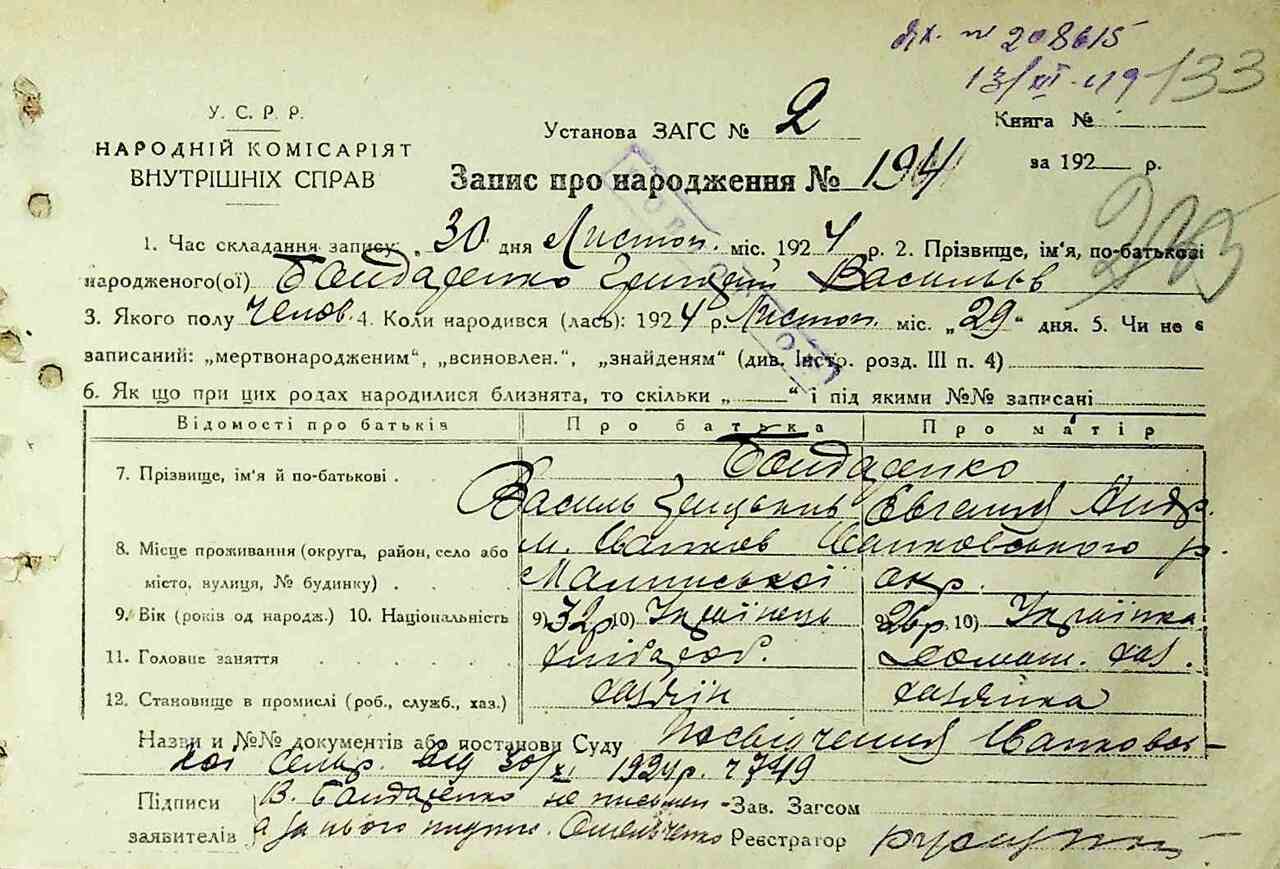 вх. № 208615
13/XI-49 133
У. С. Р. Р.
НАРОДНІЙ КОМІСАРІЯТ
ВНУТРІШНІХ СПРАВ
Установа ЗАГС № 2
Книга №
за 192 р.
Запис про народження № 194
1. Час складання запису: „30 дня Листоп. міс. 1924 р. 2. Прізвище, ім'я, по-батькові
народженого(ої) Бондаренко Грицько Васильєв
3. Якого полу Челов. 4. Коли народився (лась): 1924 р. Листоп. міс. „29“ дня. 5. Чи не є
записаний: „мертвонародженим“, „всиновлен.“, „знайденям“ (див. Інстр. розд. III п. 4)
6. Як що при цих родах народилися близнята, то скільки „ “ і під якими №№ записані
Відомості про батьків Про батька Про матір
7. Прізвище, ім'я й по-батькові . Бондаренко
Василь Грицьків Євгенія Андр.
8. Місце проживання (округа, район, село або м. Іванков Іванковського р.
місто, вулиця, № будинку) . . Малинської окр.
9. Вік (років од народж.) 10. Національність 9) 32р. 10) Українець 9) 26р. 10) Українка
11. Головне заняття . . . . . хлібороб. домаш. хаз.
12. Становище в промислі (роб., служб., хаз.) хазяїн хазяйка
Назви и №№ документів або постанови Суду Посвідчення Іванковсь-
кої сельр. від 30/XI 1924р. ч 7749
Підписи В. Бондаренко не письмен - Зав. Загсом
заявителів а за нього підпис. Омельченко Реєстратор